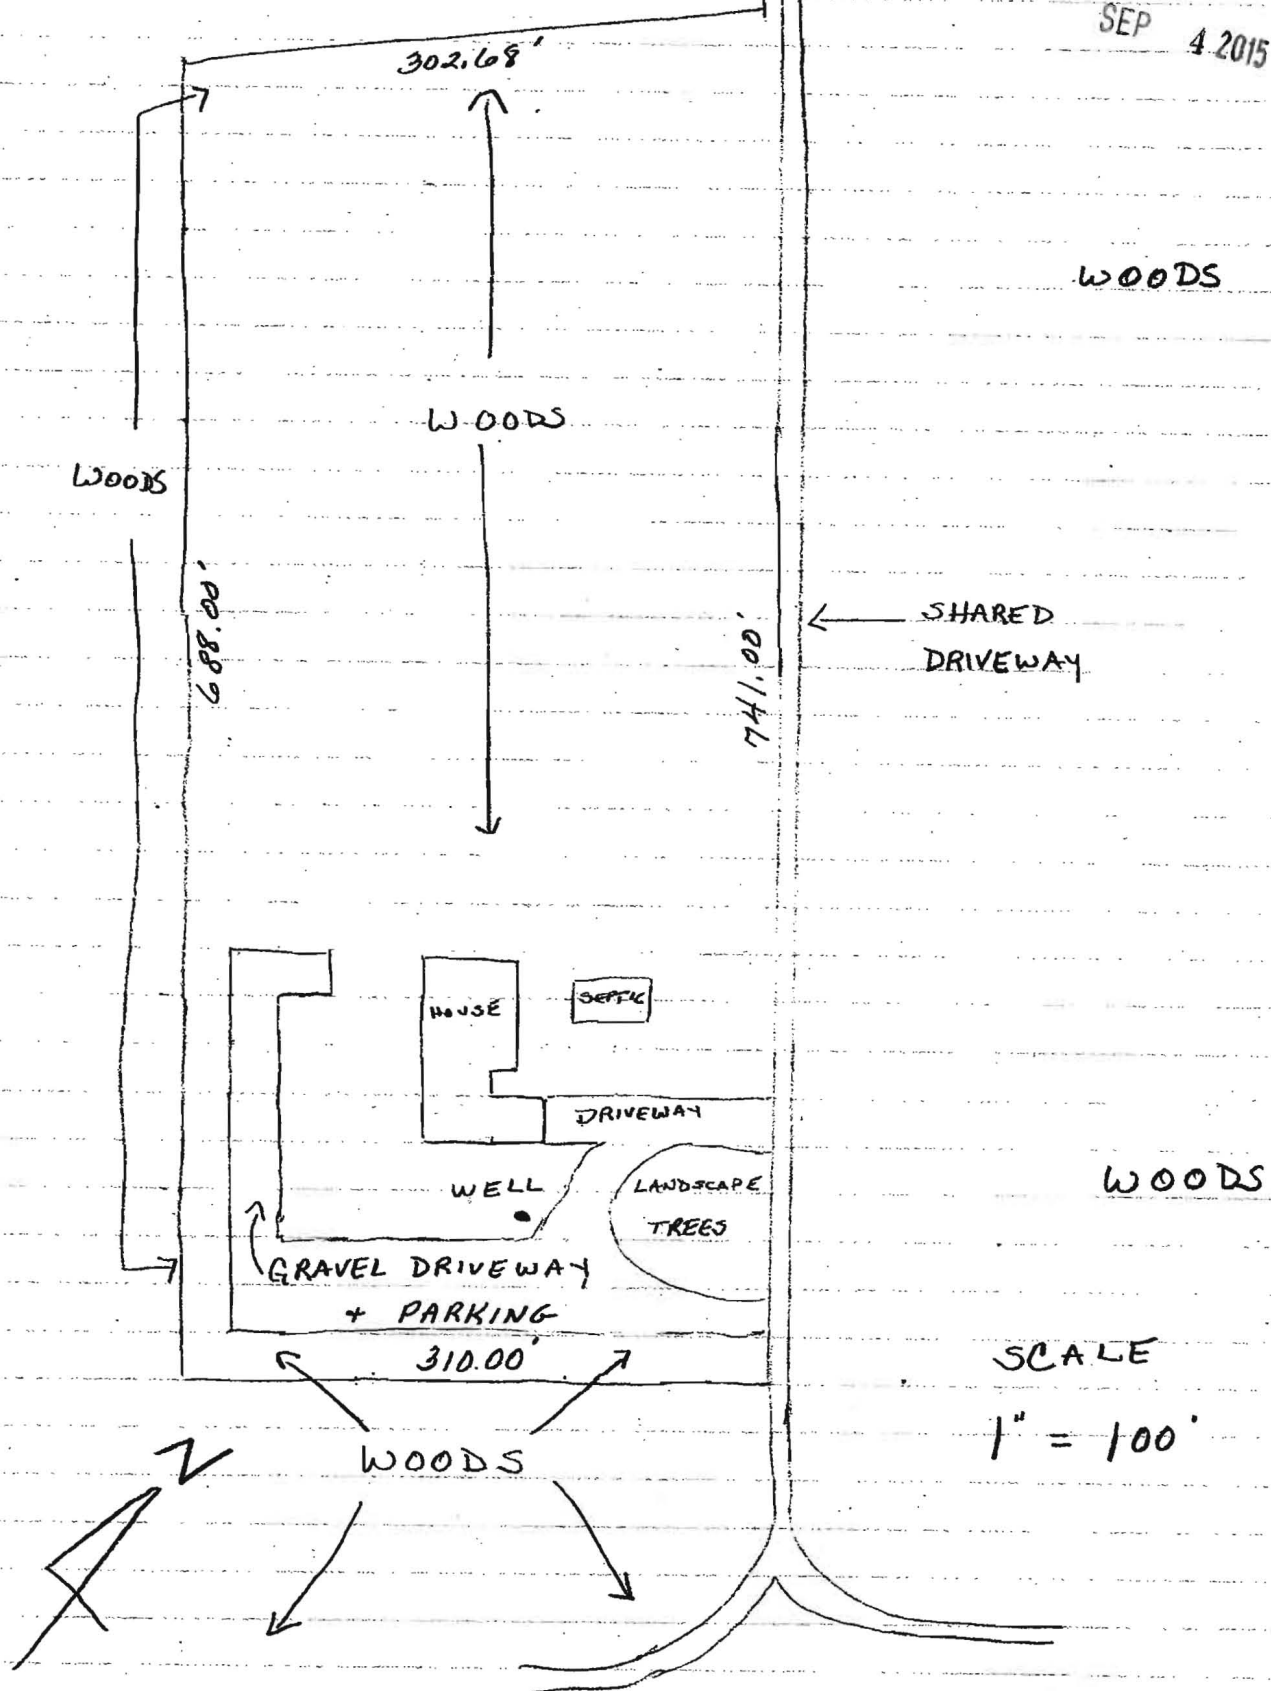 SEP 4 2015
302.68'
WOODS
WOODS
WOODS
688.00'
741.00'
SHARED
DRIVEWAY
HOUSE
SEPTIC
DRIVEWAY
WELL
LANDSCAPE
TREES
WOODS
GRAVEL DRIVEWAY
+ PARKING
310.00'
SCALE
1" = 100'
WOODS
N